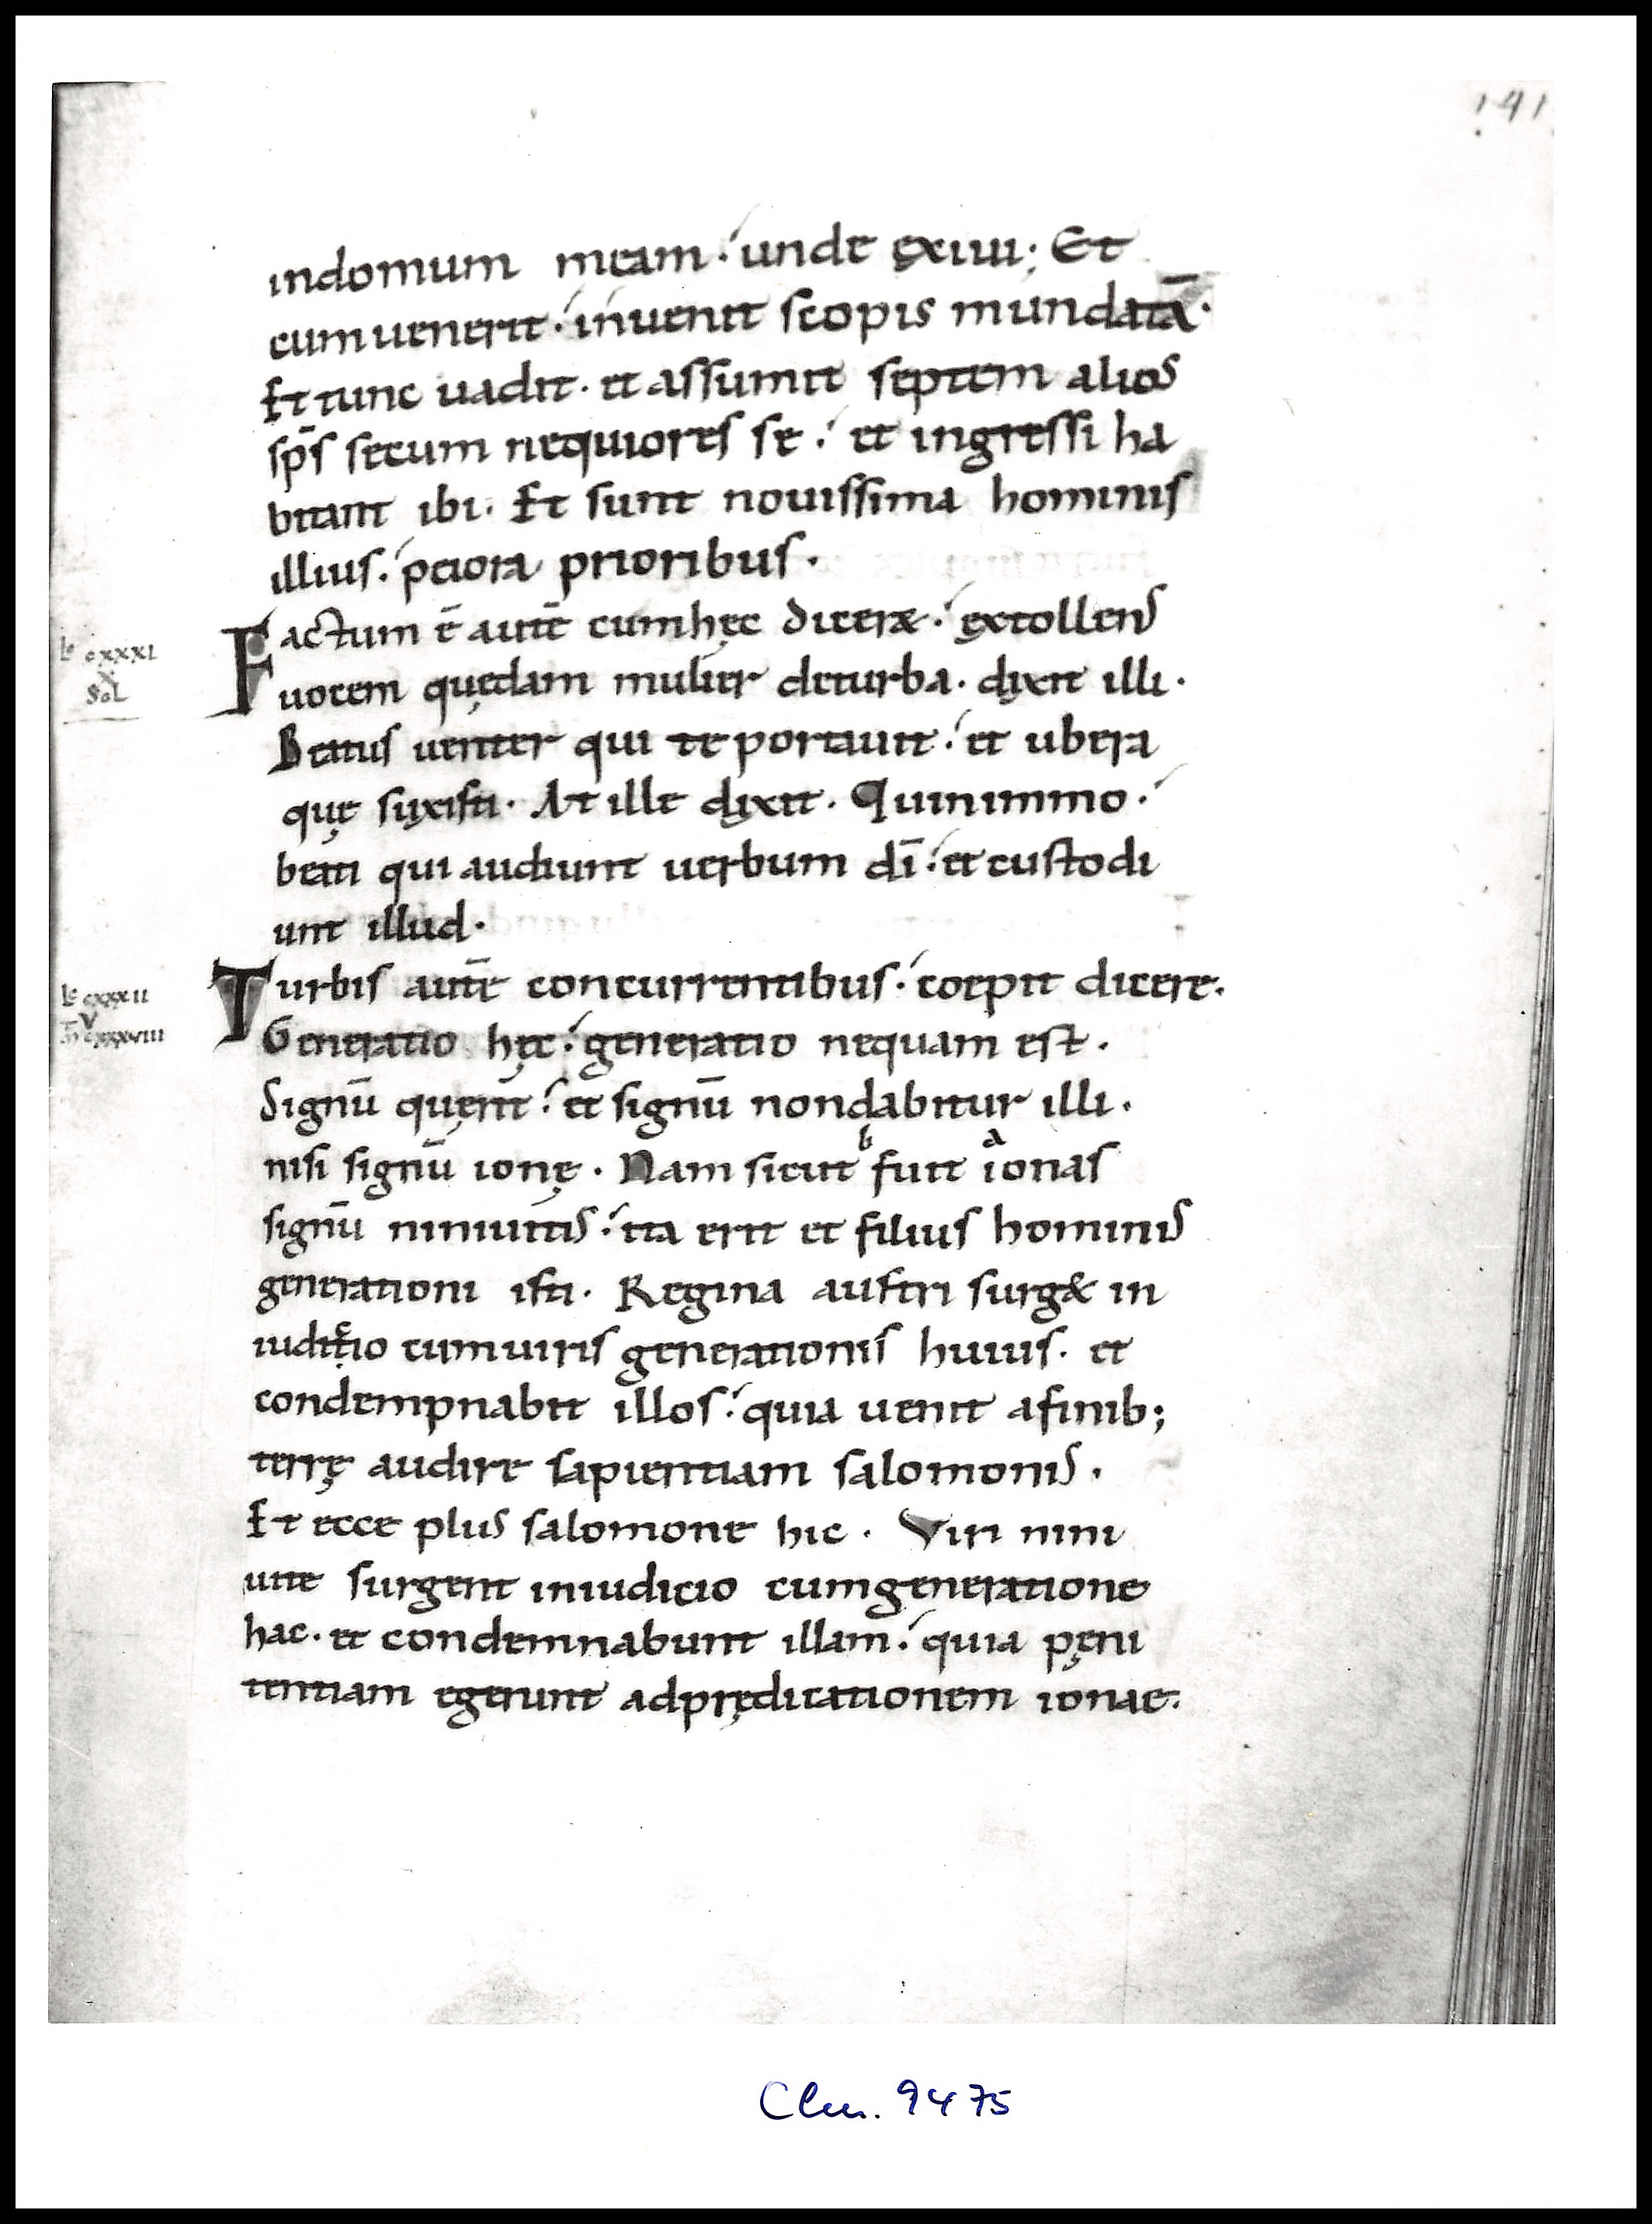 141
indomum meam · unde ęxiui; Et
cum uenerit · inuenit scopis mundatā·
Et tunc uadit· et assumit septem alios
sp̄s secum nequiores se · et ingressi ha
bitant ibi. Et sunt nouissima hominis
illius · peiora prioribus·
Lc cxxxi
X
Sol
Factum ē autē cumhęc diceret · ęxtollens
uocem quędam mulier deturba· dixit illi·
Beatus uenter qui te portauit · et ubera
quę suxisti· At ille dixit· Quinimmo ·
beati qui audiunt uerbum dī · et custodi
unt illud·
Lc cxxxii
V
cxxxviii
Turbis autē concurrentibus · coepit dicere·
Generatio hęc · generatio nequam est·
Signū quęrit · et signū nondabitur illi·
nisi signū ionę· Nam sicut ᵇfuit ᵃionas
signū niniuitis · ita erit et filius hominis
generationi isti· Regina austri surg& in
iuditᶜio cumuiris generationis huius· et
condempnabit illos · quia uenit afinib;
terrę audire sapientiam salomonis·
Et ecce plus salomone hic· Viri nini
uite surgent iniudicio cumgeneratione
hac· et condemnabunt illam · quia pęni
tentiam egerunt adprędicationem ionae·
Clm. 9475